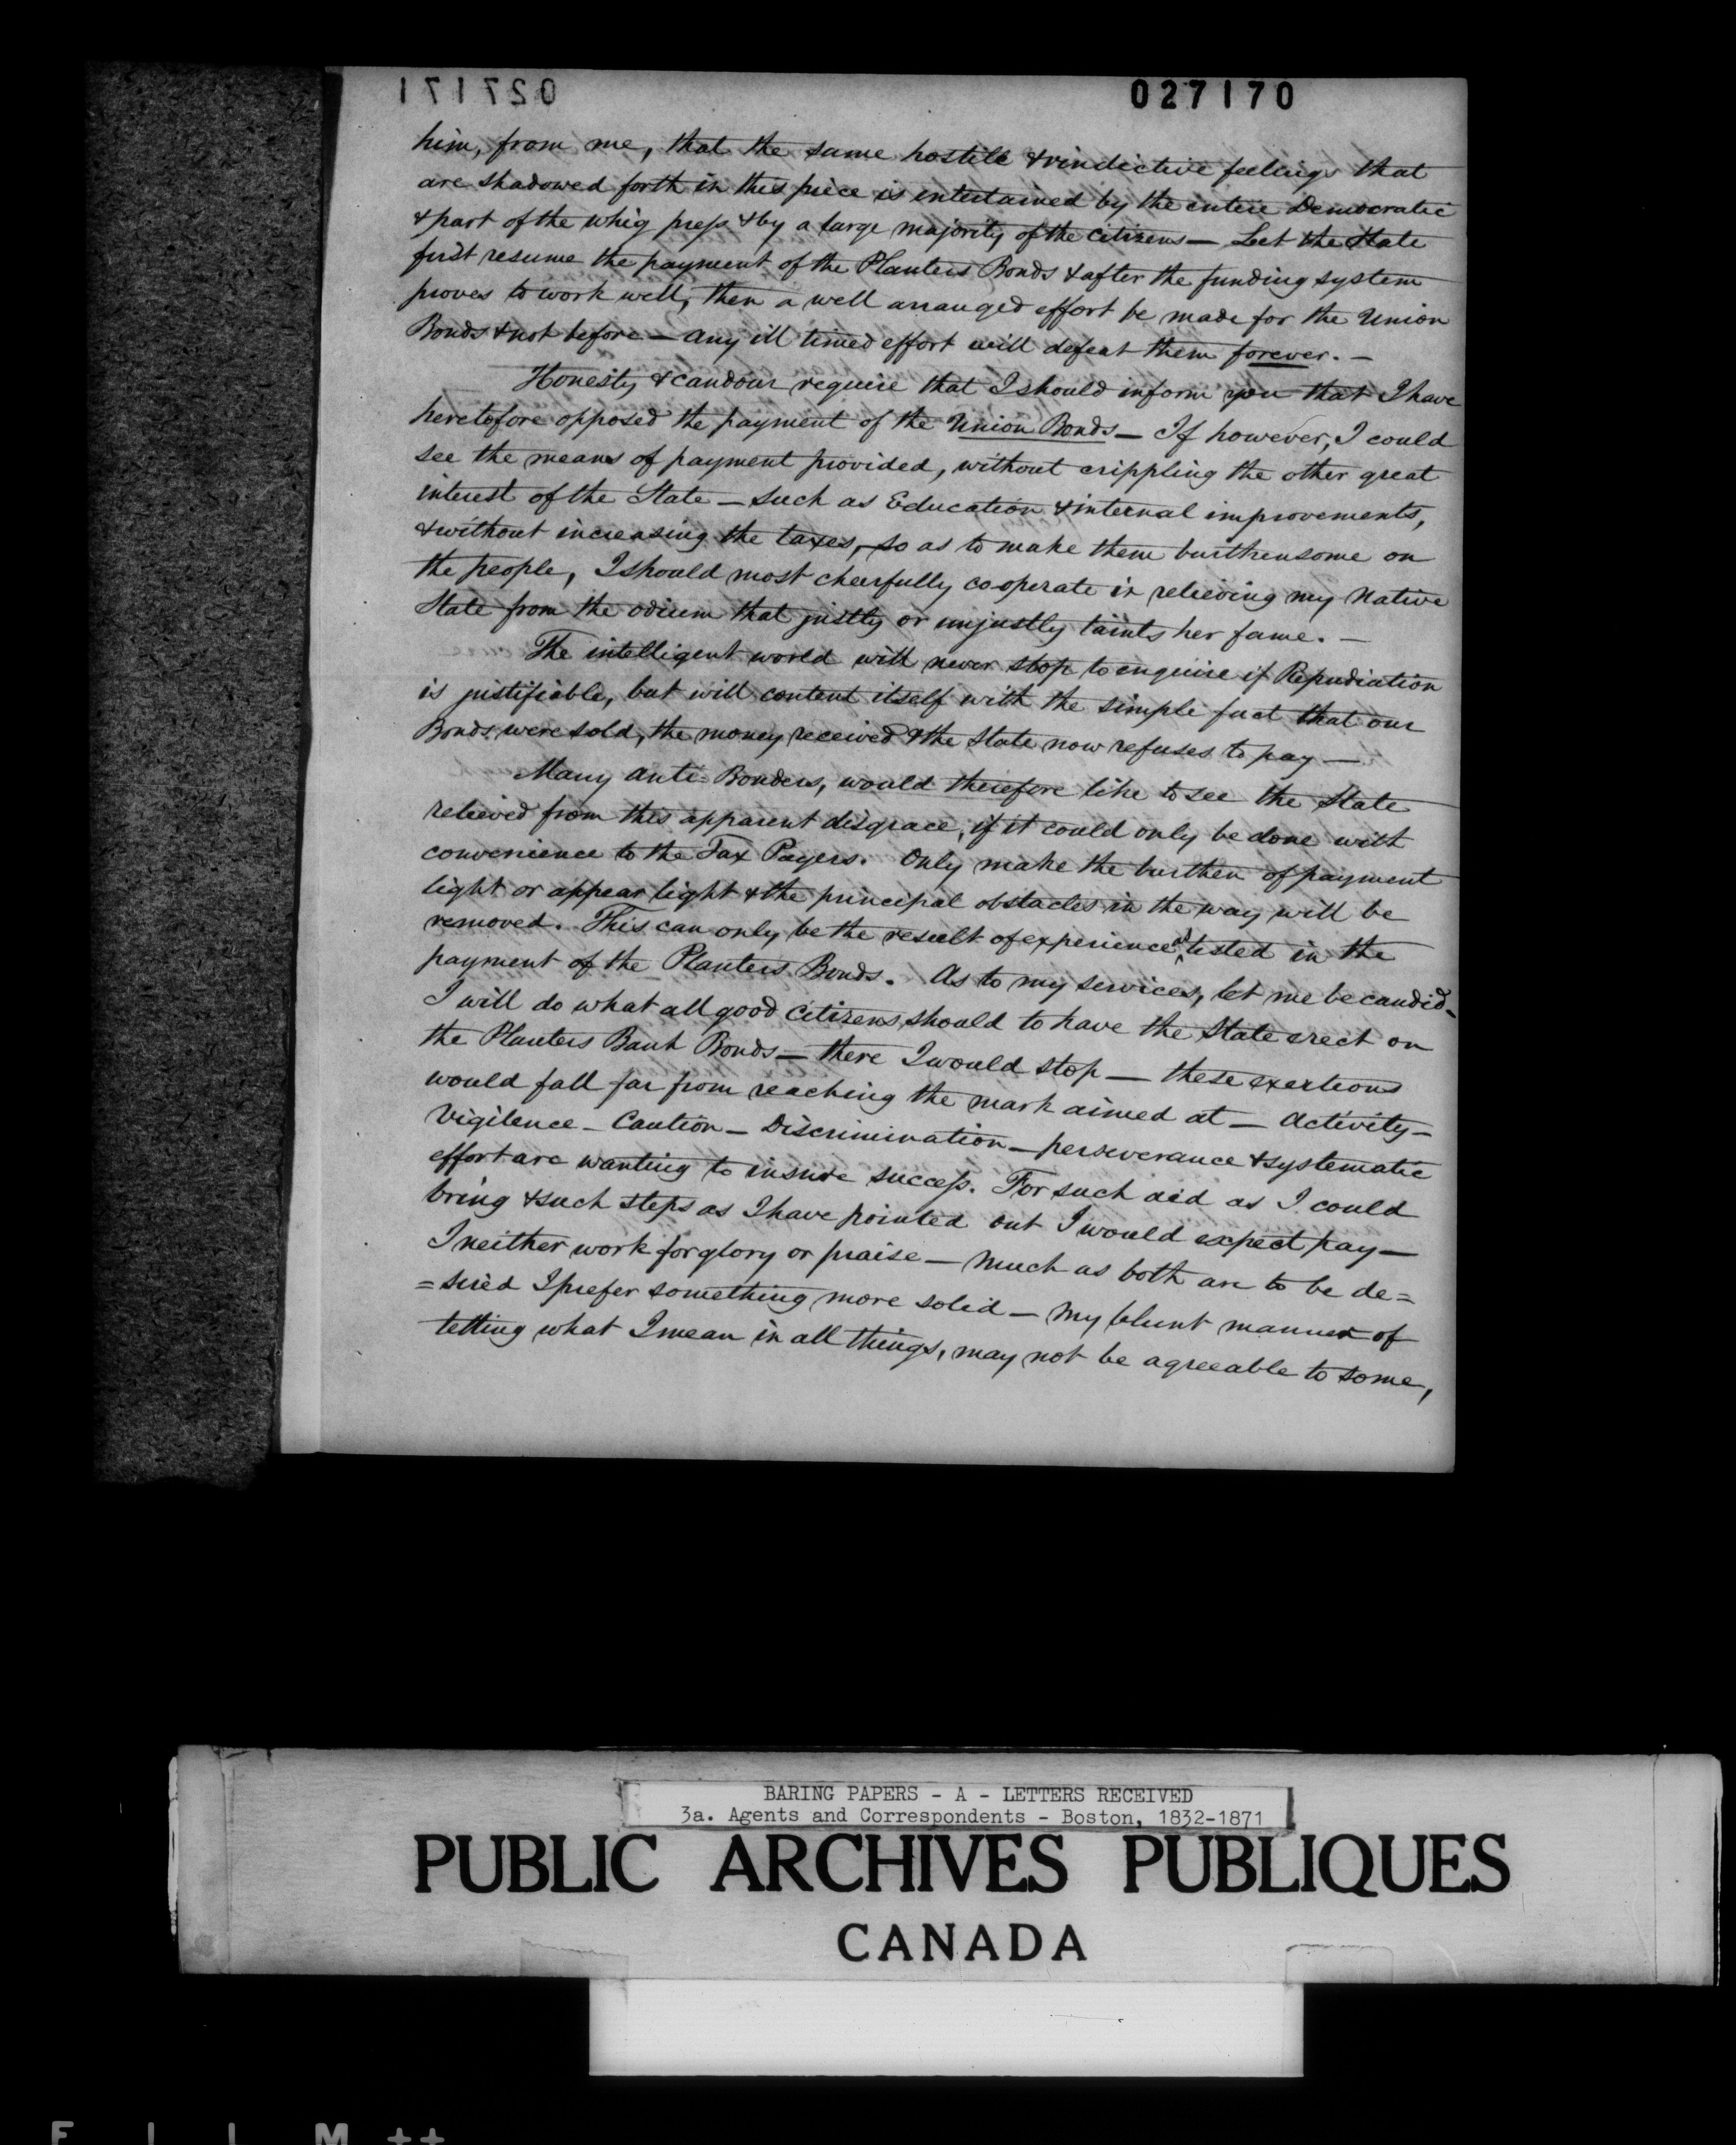 027171
027170
him, from me, that the same hostile & vindictive feelings that
are shadowed forth in this piece is entertained by the entire Democratic
& part of the whig press & by a large majority of the Citizens — Let the State
first resume the payment of the Planters Bonds & after the funding system
proves to work well, then a well arranged effort be made for the Union
Bonds & not before — Any ill timed effort will defeat them forever. —
Honesty & candour require that I should inform you that I have
heretofore opposed the payment of the Union Bonds — If however, I could
see the means of payment provided, without crippling the other great
interest of the State — such as Education & internal improvements,
& without increasing the taxes, so as to make them burthensome on
the people, I should most cheerfully co-operate in relieving my Native
State from the odium that justly or unjustly taints her fame. —
The intelligent world will never stop to enquire if Repudiation
is justifiable, but will content itself with the simple fact that our
Bonds were sold, the money received & the State now refuses to pay —
Many Anti-Bonders, would therefore like to see the State
relieved from this apparent disgrace, if it could only be done with
convenience to the Tax Payers. Only make the burthen of payment
light or appear light & the principal obstacles in the way will be
removed. This can only be the result of experience as tested in the
payment of the Planters Bonds. As to my services, let me be candid —
I will do what all good Citizens should to have the State erect on
the Planters Bank Bonds — there I would stop — these exertions
would fall far from reaching the mark aimed at — Activity —
Vigilence — Caution — Discrimination — perseverance & systematic
effort are wanting to insure success. For such aid as I could
bring & such steps as I have pointed out I would expect pay —
I neither work for glory or praise — Much as both are to be de=
=sired I prefer something more solid — My blunt manner of
telling what I mean in all things, may not be agreeable to some,
BARING PAPERS - A - LETTERS RECEIVED
3a. Agents and Correspondents - Boston, 1832-1871
PUBLIC ARCHIVES PUBLIQUES
CANADA